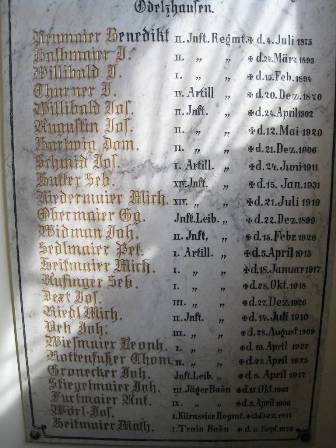 Odelzhausen.
Neumaier Benedikt II. Jnft. Regmt. ✠ d. 4. Juli 1875
J. II. „ „ ✠ d. 24. März 1893
Willibald J. I. „ „ ✠ d. 15. Feb. 1894
Thurner J. IV. Artill „ ✠ d. 20. Dez. 1870
Willibald Jos. II. Jnft. „ ✠ d. 24. April 1902
Augustin Jos. „ „ ✠ d. 12. Mai 1920
Hartwig Dom. II. „ „ ✠ d. 21. Dez. 1906
Schmid Jos. I. Artill. „ ✠ d. 24. Juni 1911
Hutter Seb. XIV. Jnft. „ ✠ d. 15. Jan. 1931
Niedermaier Mich. XIV. „ „ ✠ d. 21. Juli 1919
Obermaier Gg. Jnft. Leib. „ ✠ d. 22. Dez. 1899
Widman Joh. II. Jnft. „ ✠ d. 15. Febr. 1926
Sedlmaier Pet. I. Artill. „ ✠ d. 5. April 1913
Heitmaier Mich. I. „ „ ✠ d. 18. Januar 1917
Kufinger Seb. I. „ „ ✠ d. 28. Okt. 1918
Dext Jos. III. „ „ ✠ d. 22. Dez. 1926
Riedl Mich. II. Jnft. „ ✠ d. 14. Juli 1910
Veh Joh. III. „ „ ✠ d. 23. August 1909
Wiesmaier Leonh. I. „ „ ✠ d. 19. April 1922
Rottenfußer Thom. II. „ „ ✠ d. 22. April 1923
Gronecker Joh. Jnft. Leib. „ ✠ d. 8. April 1917
Stiegelmaier Jos. III. Jäger Baōn ✠ Okt.
Furtmaier Ant. IX. „ ✠ d. 2. April 1906
Wörl Jos. I. Kürassier Regmt. ✠ d. Dez. 1911
Heitmaier Math. I. Train Baōn ✠ d. Sept.